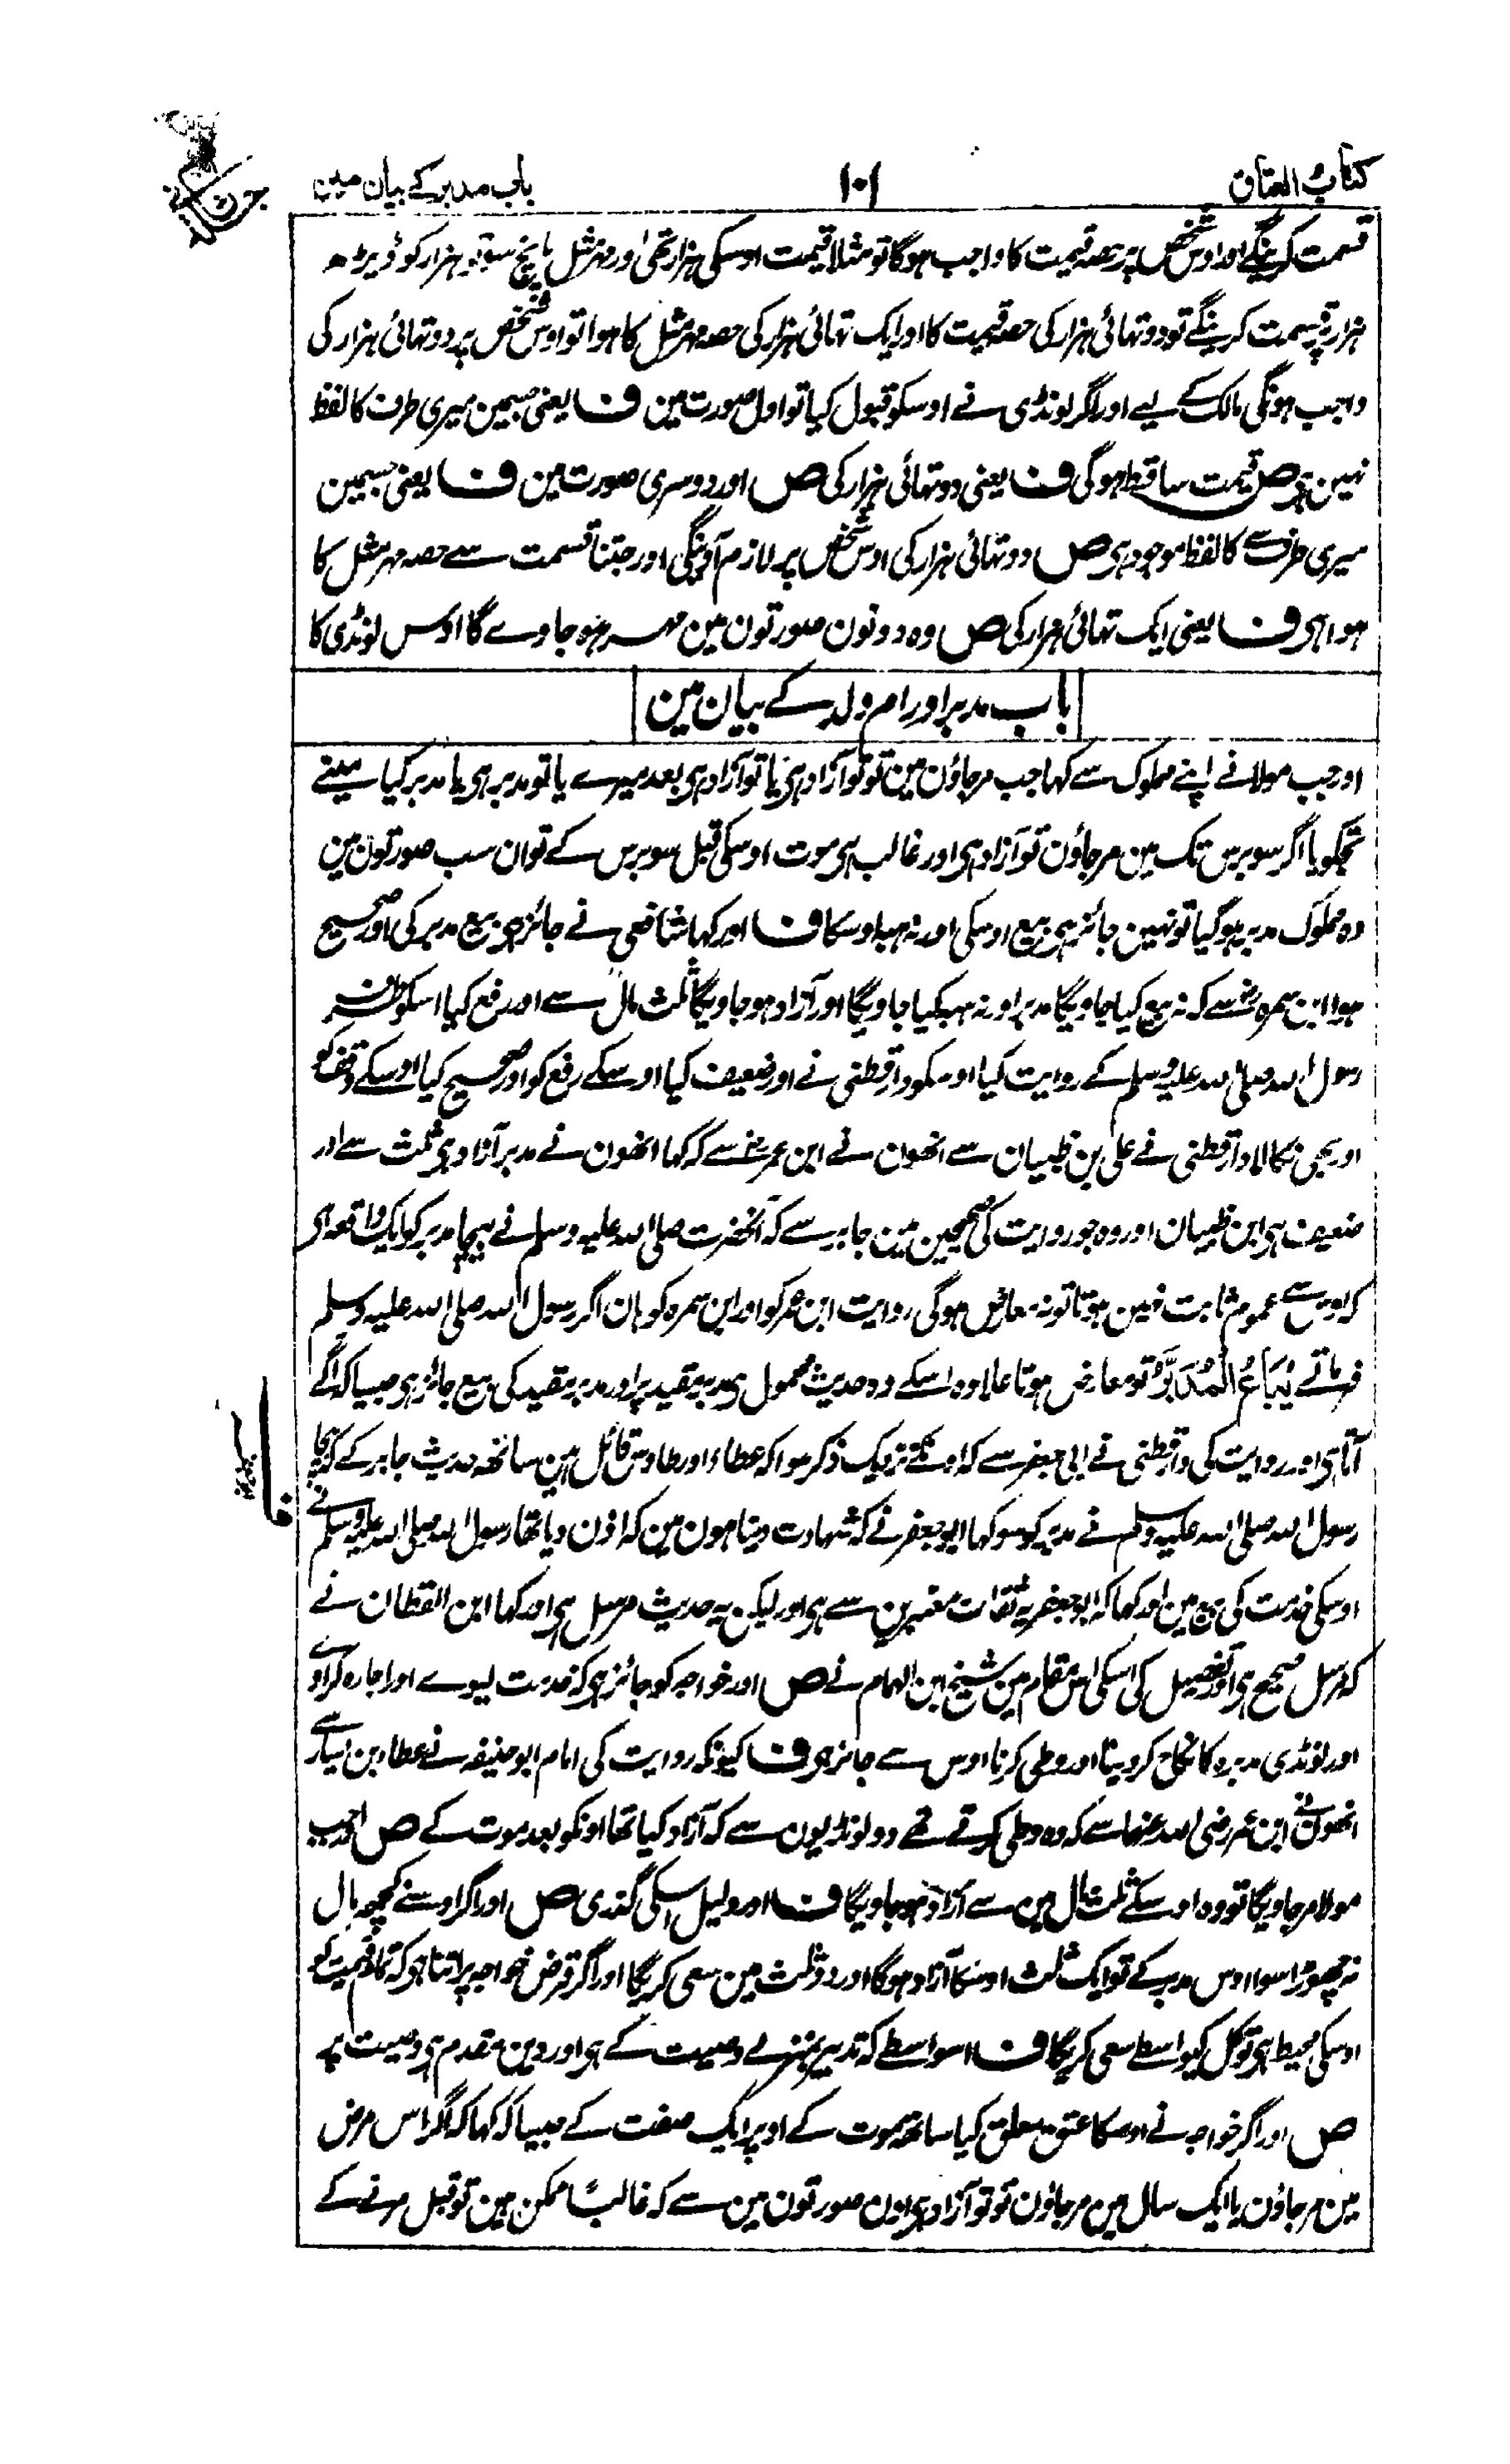 کتاب العتاق
۱۰۱
باب مدبر کے بیان مین
قسمت کرینگے اور اوس شخص پر حصہ قیمت کا واجب ہوگا تو مثلا قیمت اوسکی ہزار تھی اور مہر مثل پانچ سو تو ہزار کو ڈیڑھ
ہزار پر قسمت کرینگے تو دو تہائی ہزار کی حصہ قیمت کا اور ایک تہائی ہزار کی حصہ مہر مثل کا ہوا تو اوس شخص پر دو تہائی ہزار کی
واجب ہونگی مالک کے لیے اور اگر لونڈی نے اوسکو قبول کیا تو اول صورت مین ف یعنی جسمین میری طرف کا لفظ
نہین ہی ص قیمت ساقط ہوگی ف یعنی دو تہائی ہزار کی ص اور دوسری صورت مین ف یعنی جسمین
میری طرف سے کا لفظ موجود ہی ص دو تہائی ہزار کی اوس شخص پر لازم آوینگی اور جتنا قسمت سے حصہ مہر مثل کا
ہوا ہی ف یعنی ایک تہائی ہزار کی ص وہ دونون صورتون مین مہر ہو جاوے گا اوس لونڈی کا
باب مدبر اور ام ولد کے بیان مین
اور جب مولا نے اپنے مملوک سے کہا جب مر جاؤن مین تو تو آزاد ہی یا تو آزاد ہی بعد میرے یا تو مدبر ہی یا مدبر کیا مینے
تجکو یا اگر سو برس تک مین مر جاؤن تو آزاد ہی اور غالب ہی موت اوسکی قبل سو برس کے تو ان سب صورتون مین
وہ مملوک مدبر ہو گیا تو نہین جائز ہی بیع اوسکی اور نہ ہبہ اوسکا ف اور کہا شافعی نے جائز ہی بیع مدبر کی اور صحیح
ہوا ابن سمرہ رضہ سے کہ نہ بیع کیا جاویگا مدبر اور نہ ہبہ کیا جاویگا اور آزاد ہو جاویگا ثلث مال سے اور رفع کیا اسکو طرف
رسول اللہ صلی اللہ علیہ وسلم کے روایت کیا اوسکو دارقطنی نے اور ضعیف کیا اوسکے رفع کو اور صحیح کیا اوسکے وقف کو
اور بھی نکالا دارقطنی نے علی بن ظبیان سے انھون نے ابن عمر رضہ سے کہ کہا انھون نے مدبر آزاد ہی ثلث سے اور
ضعیف ہی ابن ظبیان اور وہ جو روایت کی صحیحین مین جابر سے کہ آنحضرت صلی اللہ علیہ وسلم نے بیچا مدبر کو ایک واقعہ ہی
کہ اوس سے عموم ثابت نہین ہوتا تو نہ معارض ہوگی روایت ابن عمر کو اور ابن سمرہ کو ہان اگر رسول اللہ صلی اللہ علیہ وسلم
فرماتے یُبَاعُ الْمُدَبَّرُ تو معارض ہوتا علاوہ اسکے وہ حدیث محمول ہی مدبر مقید پر اور مدبر مقید کی بیع جائز ہی جیسا کہ آگے
آتا ہی اور روایت کی دارقطنی نے ابی جعفر سے کہ اونکے نزدیک ذکر ہوا کہ عطاء اور طاوس قائل ہین ساتھ حدیث جابر کے کہ بیچا
رسول اللہ صلی اللہ علیہ وسلم نے مدبر کو سو کہا ابو جعفر نے کہ شہادت دیتا ہون مین کہ اذن دیا تھا رسول اللہ صلی اللہ علیہ وسلم نے
اوسکی خدمت کی بیع مین اور کہا کہ ابو جعفر یہ ثقات معتبرین سے ہی اور لیکن یہ حدیث مرسل ہی اور کہا ابن القطان نے
کہ مرسل صحیح ہی اور تفصیل کی اسکی اس مقام مین شیخ ابن الہمام نے ص اور خواجہ کو جائز ہی کہ خدمت لیوے اور اجارہ کراوے
اور لونڈی مدبرہ کا نکاح کر دینا اور وطی کرنا اوس سے جائز ہی ف کیونکہ روایت کی امام ابو حنیفہ نے عطاء بن یسار سے
انھون نے ابن عمر رضی اللہ عنہما سے کہ وہ وطی کرتے تھے دو لونڈیون سے کہ آزاد کیا تھا اونکو بعد موت کے ص اور جب
مولا مر جاویگا تو وہ اوسکے ثلث مال مین سے آزاد ہو جاویگا ف اور دلیل اسکی گذری ص اور اگر اوسنے کچھ مال
نہ چھوڑا سوا اوس مدبر کے تو ایک ثلث اوسکا آزاد ہوگا اور دو ثلث مین سعی کریگا اور اگر قرض خواجہ پر اتنا ہو کہ تمام قیمت کو
اوسکی محیط ہی تو کل کیواسطے سعی کریگا ف اسواسطے کہ تدبیر بمنزلے وصیت کے ہی اور دین مقدم ہی وصیت پر
ص اور اگر خواجہ نے اوسکا عتق معلق کیا ساتھ موت کے اوپر ایک صفت کے جیسا کہ کہا کہ اگر اس مرض
مین مر جاؤن یا ایک سال مین مر جاؤن تو تو آزاد ہی اون صورتون مین سے کہ غالباً ممکن ہین تو قبل مرنے کے